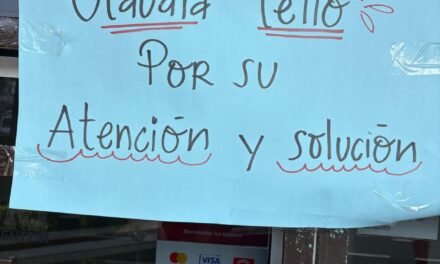 Tello
POR SU
Atención y solución
VISA